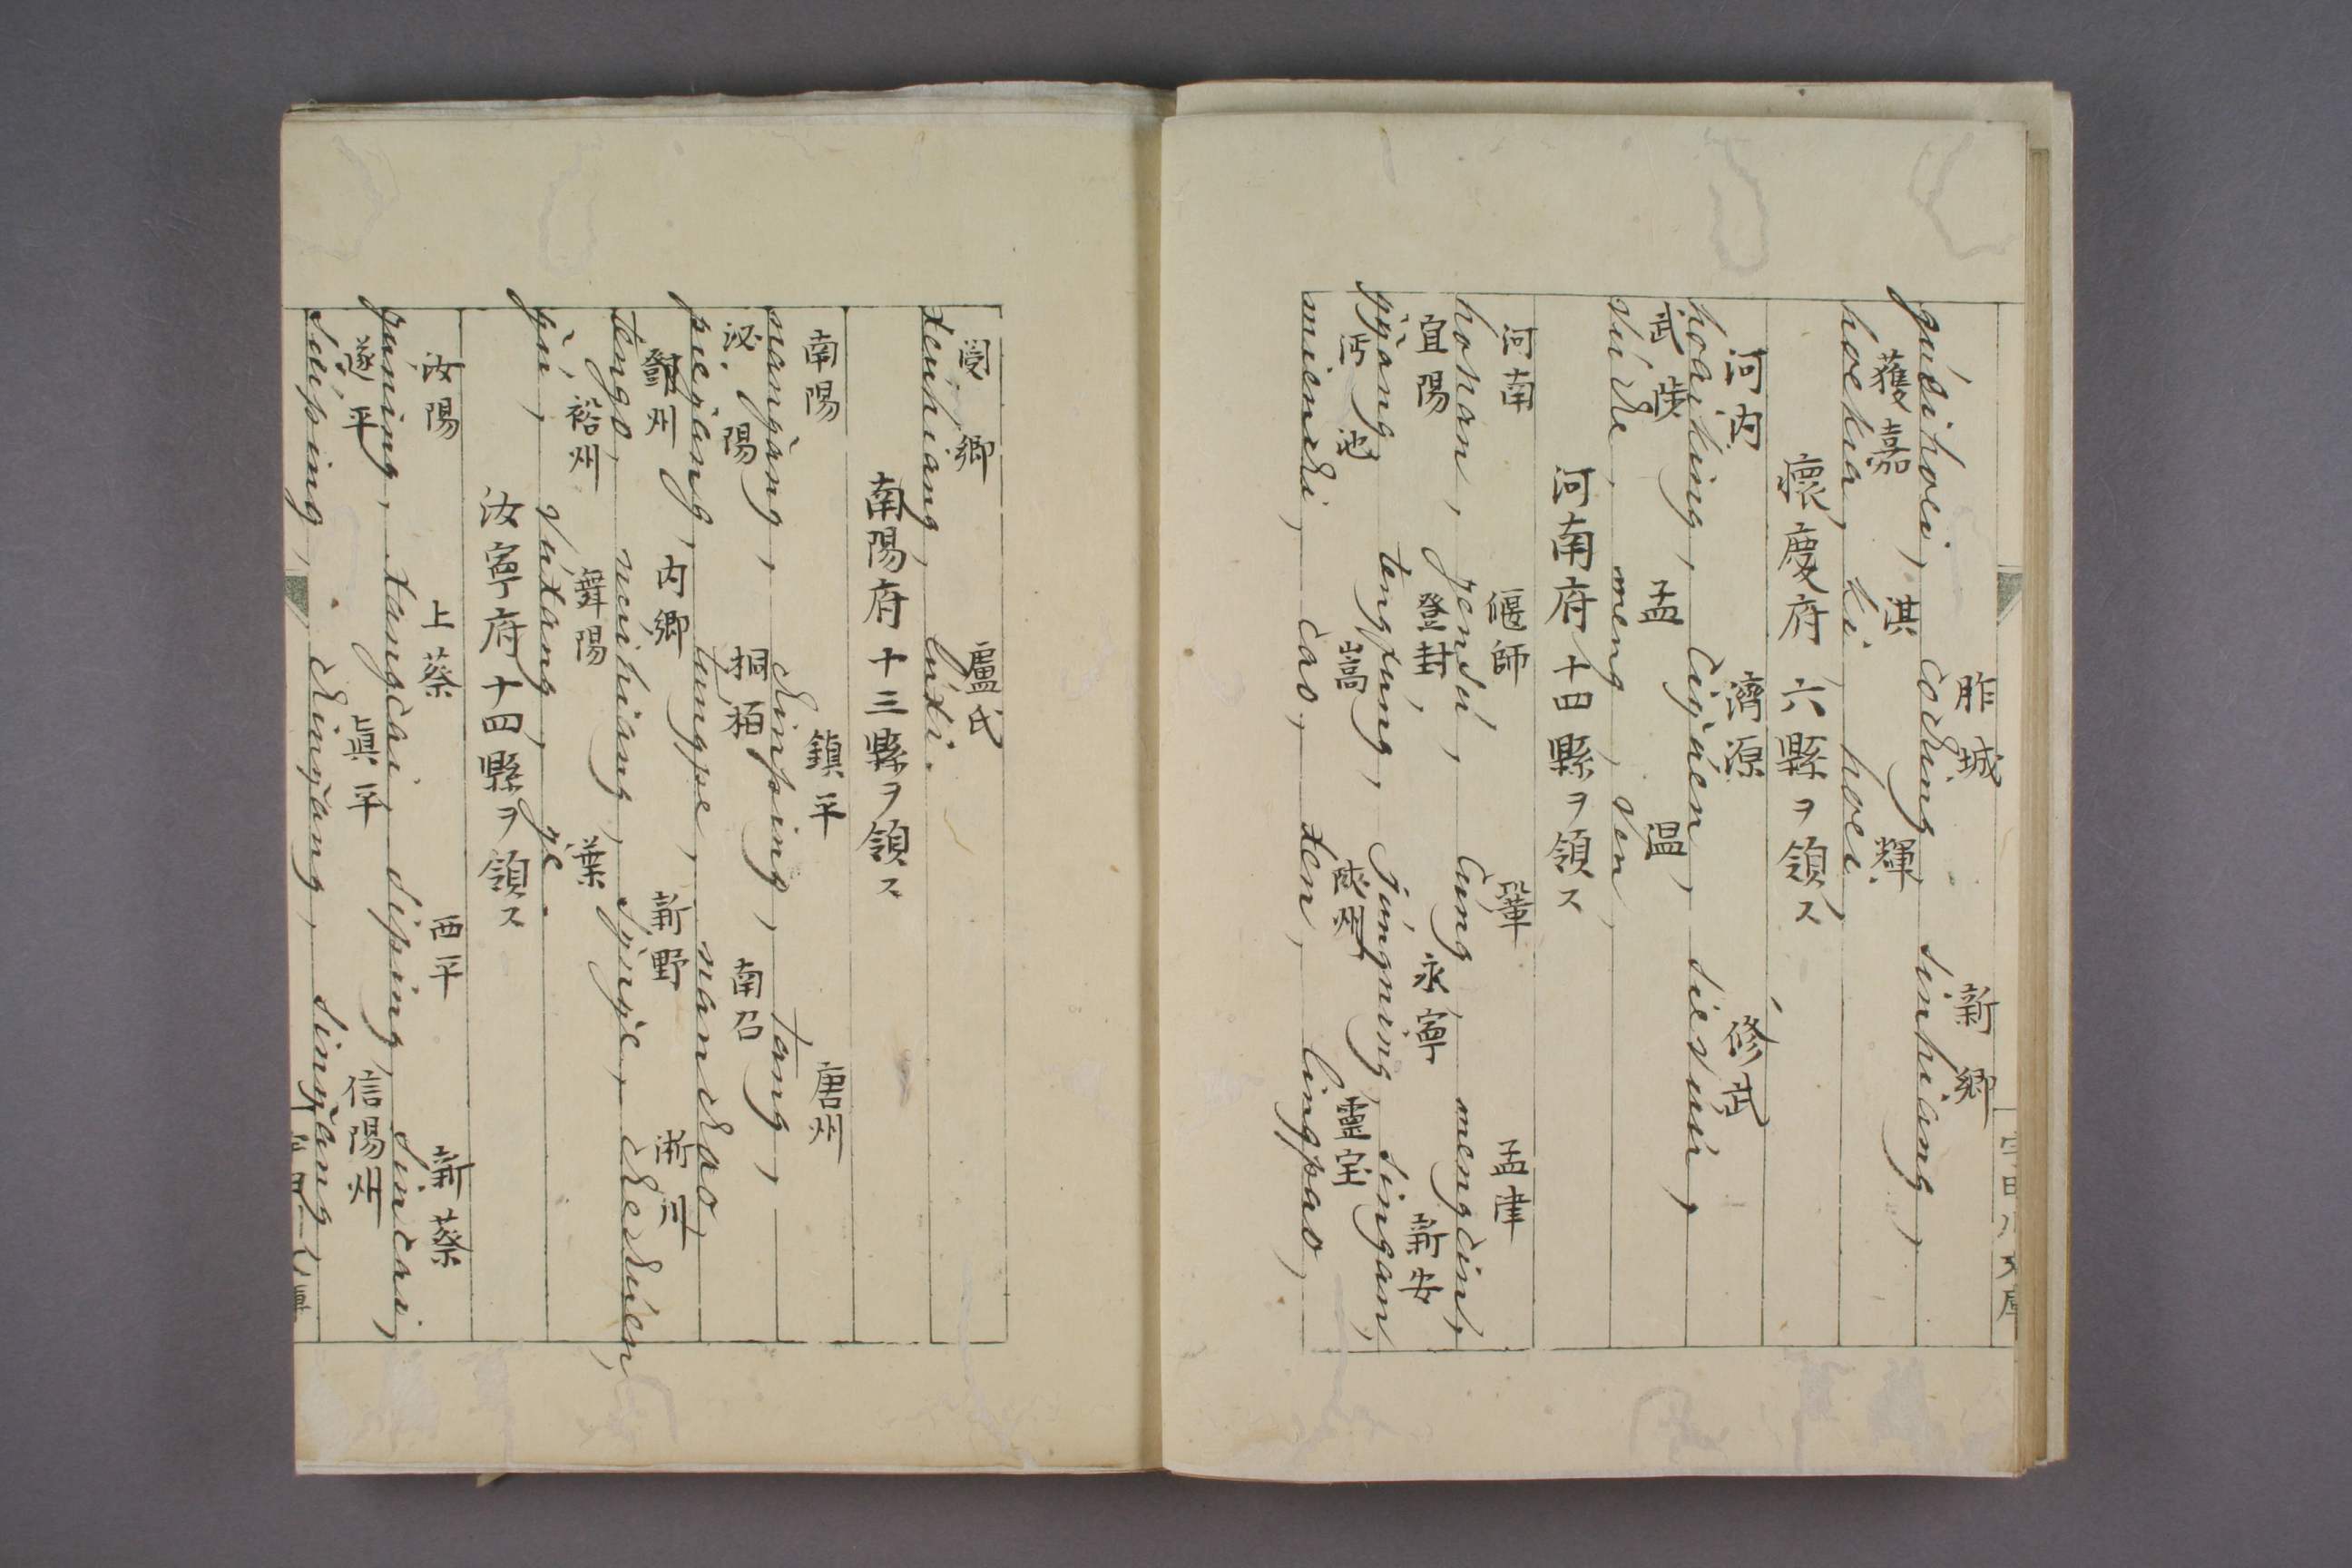 胙城 新鄉
guèihoei, coching, sinhiang,
獲嘉 淇 輝
hoekia, ki, hoei,
懷慶府 六縣ヲ領ス
河内 濟源 修武
hoaiking, ciyuen, sieuvu,
武陟 孟 温
meng, ven,
河南府 十四縣ヲ領ス
河南 偃師 鞏 孟津
honan, yensu, cung, mengcin,
宜陽 登封 永寧 新安
yyang, tengfung, jungning, singan,
沔池 嵩 陝州 靈宝
mienchi, cao, xen, lingpao,
閿鄉 盧氏
venhiang, luxi.
南陽府 十三縣ヲ領ス
南陽 鎮平 唐州
nangang, chinping, tang,
泌陽 桐栢 南召
pieyang, tungpe, nanchao,
鄧州 内鄉 新野 淅川
tengo, neuihiang, synye, chechuen,
裕州 舞陽 葉
yu, vuxang, ye.
汝寧府 十四縣ヲ領ス
汝陽 上蔡 西平 新蔡
juning, xangcai, siping, sincai,
遂平 眞平 信陽州
suiping, chinyang, sinyang